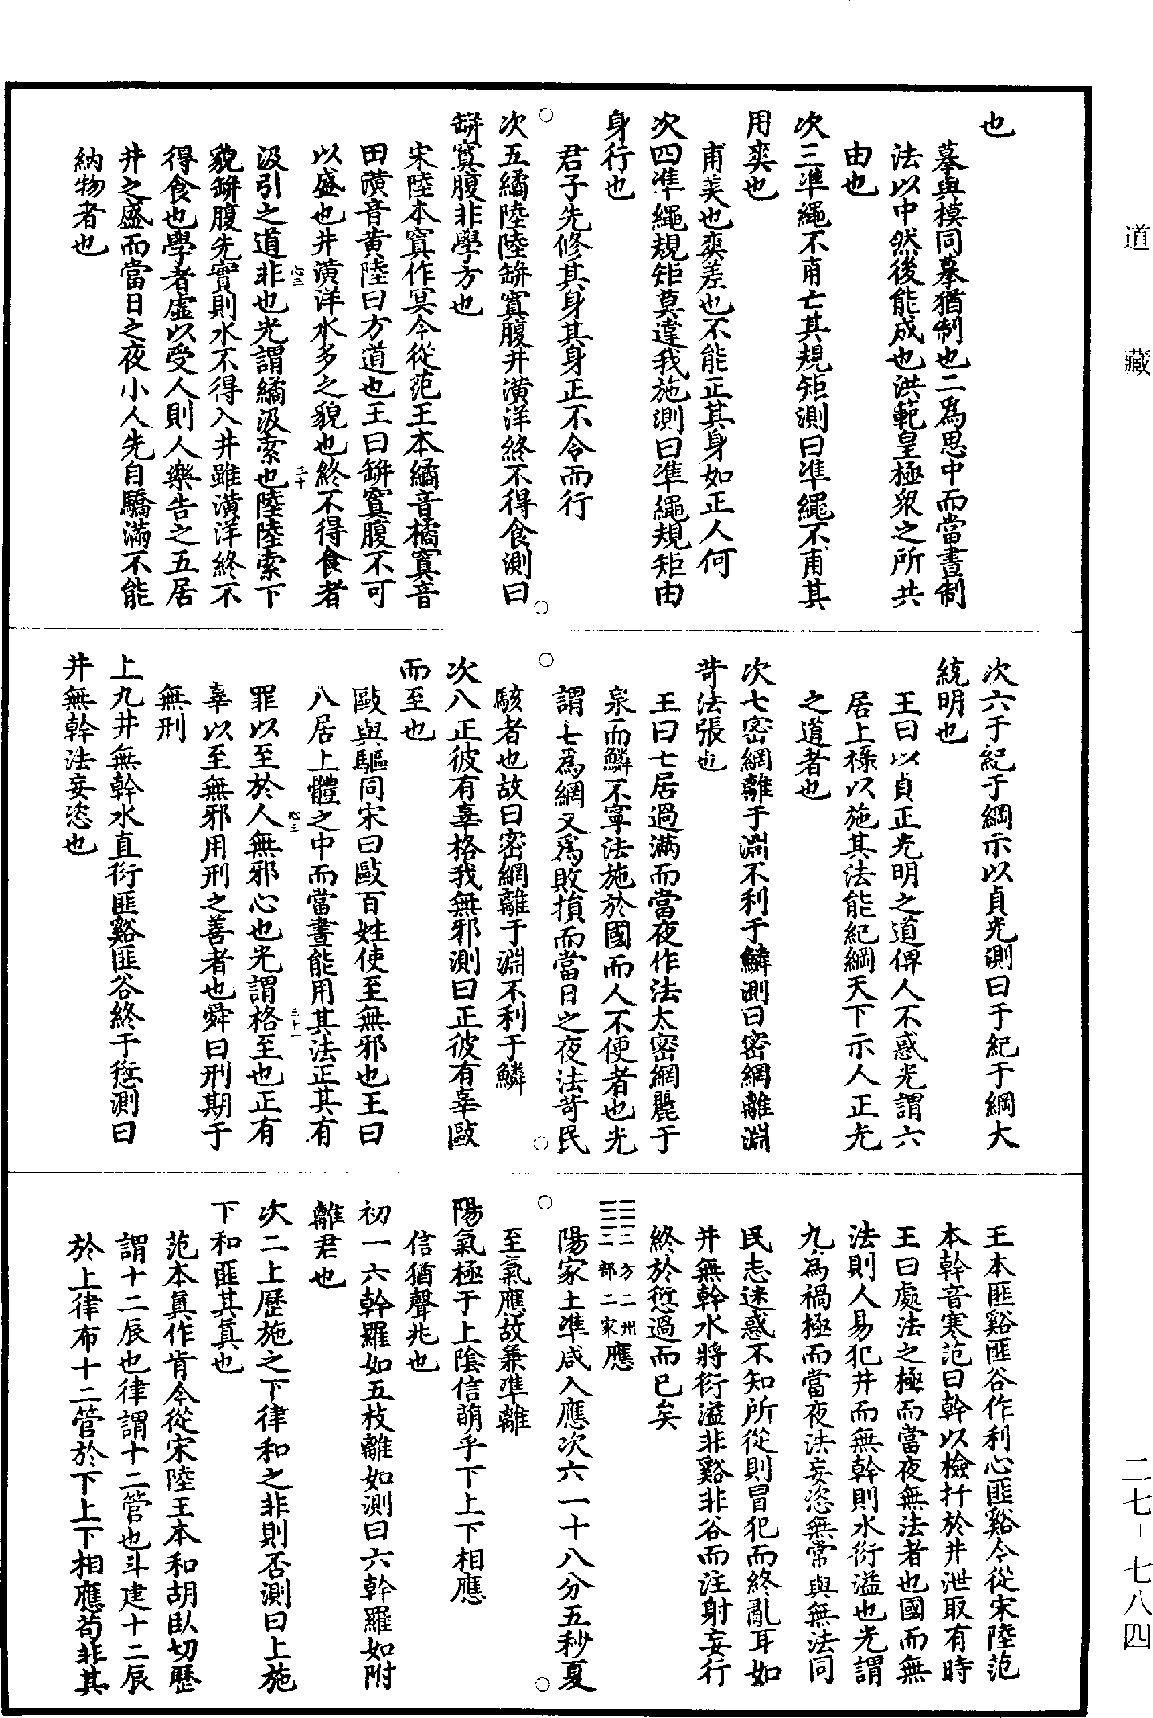 也
摹與模同摹猶制也二爲思中而當晝制
法以中然後能成也洪範皇極衆之所共
由也
次三準繩不甫亡其規矩測曰準繩不甫其
用爽也
甫美也爽差也不能正其身如正人何
次四準繩規矩莫違我施測曰準繩規矩由
身行也
君子先修其身其身正不令而行
次五繘陸陸缾窴腹井潢洋終不得食測曰
缾窴腹非學方也
宋陸本窴作冥今從范王本繘音橘窴音
田潢音黄陸曰方道也王曰缾窴腹不可
以盛也井潢洋水多之貌也終不得食者
汲引之道非也光謂繘汲索也陸陸索下
貌缾腹先實則水不得入井雖潢洋終不
得食也學者虛以受人則人樂告之五居
井之盛而當日之夜小人先自驕滿不能
納物者也
次六于紀于綱示以貞光測曰于紀于綱大
統明也
王曰以貞正光明之道俾人不惑光謂六
居上祿以施其法能紀綱天下示人正光
之道者也
次七密網離于淵不利于鱗測曰密網離淵
苛法張也
王曰七居過滿而當夜作法太密網麗于
泉而鱗不寧法施於國而人不便者也光
謂七爲網又爲敗損而當日之夜法苛民
駭者也故曰密網離于淵不利于鱗
次八正彼有辜格我無邪測曰正彼有辜歐
而至也
歐與驅同宋曰歐百姓使至無邪也王曰
八居上體之中而當晝能用其法正其有
罪以至於人無邪心也光謂格至也正有
辜以至無邪用刑之善者也舜曰刑期于
無刑
上九井無幹水直衍匪谿匪谷終于愆測曰
井無幹法妄恣也
王本匪谿匪谷作利心匪谿今從宋陸范
本幹音寒范曰幹以檢扞於井泄取有時
王曰處法之極而當夜無法者也國而無
法則人易犯井而無幹則水衍溢也光謂
九爲禍極而當夜法妄恣無常與無法同
民志迷惑不知所從則冒犯而終亂耳如
井無幹水將衍溢非谿非谷而注射妄行
終於愆過而已矣
二方二州三部二家應
陽家土準咸入應次六一十八分五秒夏
至氣應故兼準離
陽氣極于上陰信萌乎下上下相應
信猶聲兆也
初一六幹羅如五枝離如測曰六幹羅如附
離君也
次二上歷施之下律和之非則否測曰上施
下和匪其真也
范本真作肯今從宋陸王本和胡臥切歷
謂十二辰也律謂十二管也斗建十二辰
於上律布十二管於下上下相應苟非其
道藏
二七-七八四